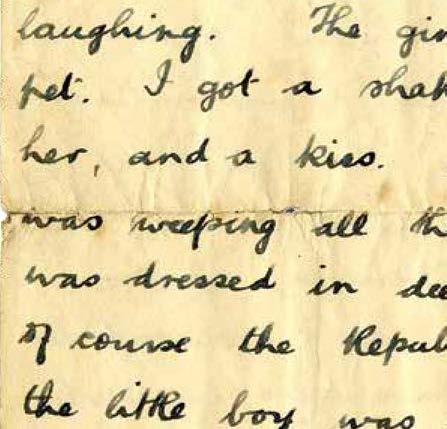 laughing. The gir
pet. I got a shak
her, and a kiss.
was weeping all th
was dressed in dee
of course the Repub
the little boy was